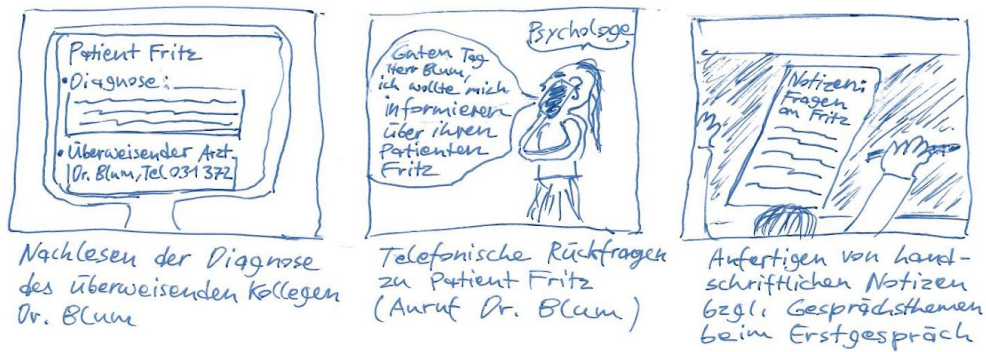 Patient Fritz
• Diagnose:
• Überweisender Arzt
Dr. Blum, Tel 031 372
Nachlesen der Diagnose
des überweisenden Kollegen
Dr. Blum
Psychologe
Guten Tag
Herr Blum,
ich wollte mich
informieren
über ihren
Patienten
Fritz
Telefonische Rückfragen
zu Patient Fritz
(Anruf Dr. Blum)
Notizen:
Fragen
an Fritz
Anfertigen von hand-
schriftlichen Notizen
bzgl. Gesprächsthemen
beim Erstgespräch